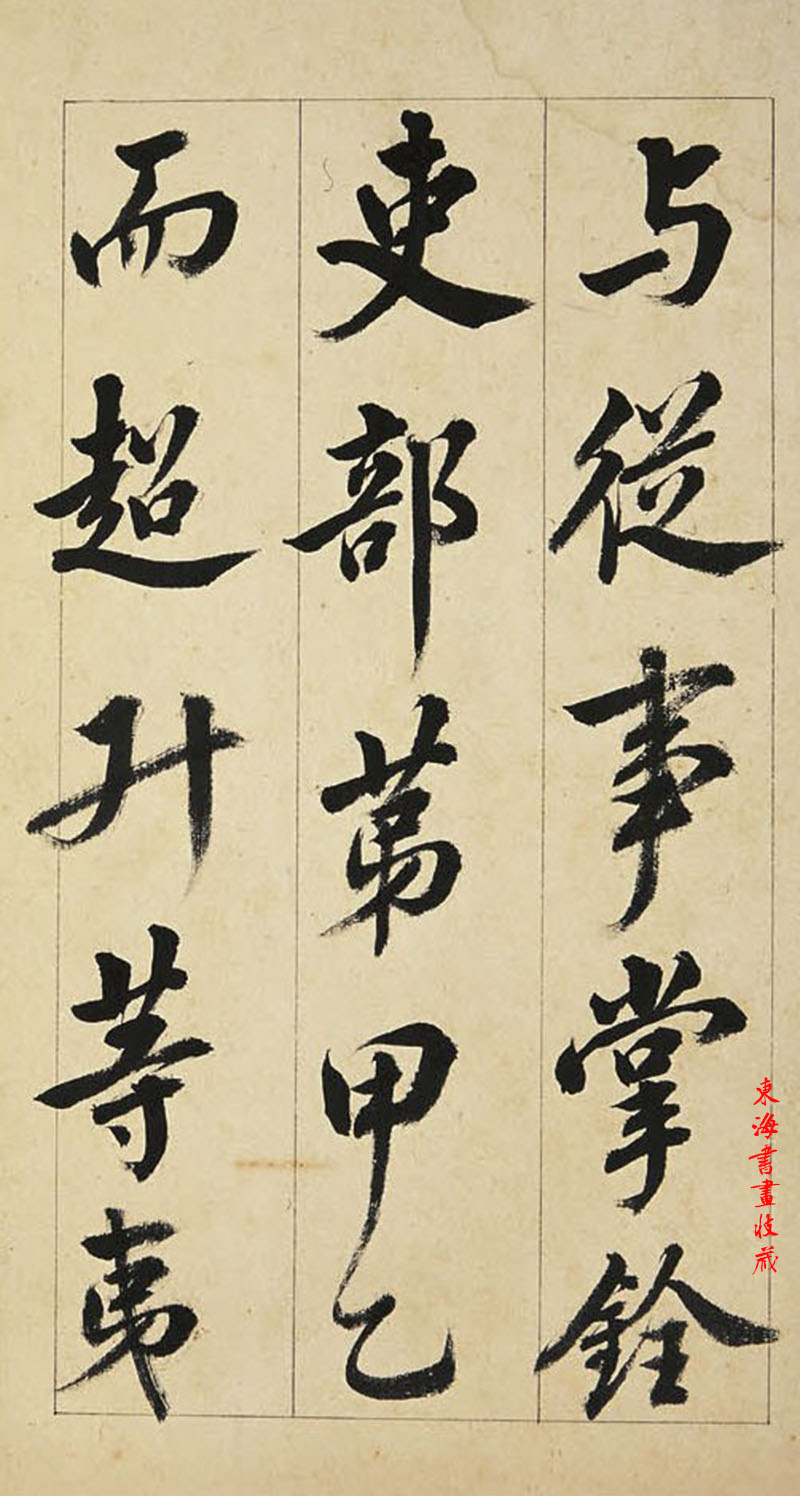 与從事掌銓
吏部第甲乙
而超升等夷
東海書畫收藏